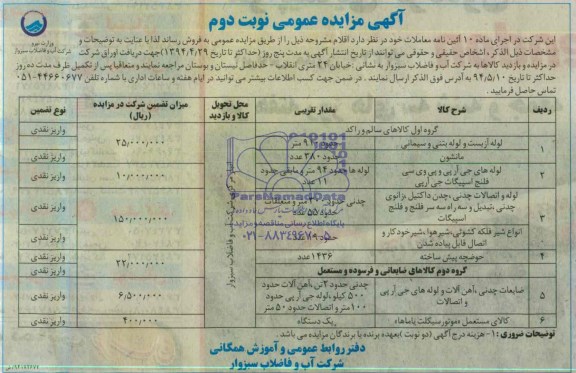 آگهی مزایده عمومی نوبت دوم
وزارت نیرو
شرکت آب و فاضلاب سبزوار
این شرکت در اجرای ماده ۱۰ آئین نامه معاملات خود در نظر دارد اقلام مشروحه ذیل را از طریق مزایده عمومی به فروش رساند لذا با عنایت به توضیحات و
مشخصات ذیل الذکر، اشخاص حقیقی و حقوقی می توانند از تاریخ انتشار آگهی به مدت پنج روز (حداکثر تا تاریخ ۱۳۹۴/۴/۲۹) جهت دریافت اوراق شرکت
در مزایده و بازدید کالاها به شرکت آب و فاضلاب سبزوار به نشانی: خیابان ۲۴ متری انقلاب - حدفاصل لبستان و بوستان مراجعه نمایند و متعاقبا پس از تکمیل ظرف مدت ده روز
حداکثر تا تاریخ ۹۴/۵/۱۰ به آدرس فوق الذکر ارسال نمایند. در ضمن جهت کسب اطلاعات بیشتر می توانید در ایام هفته و ساعات اداری با شماره تلفن ۰۵۱-۴۴۶۶۰۶۷۷
تماس حاصل فرمایید.
ردیف شرح کالا مقدار تقریبی محل تحویل کالا و بازدید میزان تضمین شرکت در مزایده (ریال) نوع تضمین
گروه اول کالاهای سالم و راکد واریز نقدی
۱ لوله آزبست و لوله بتنی و سیمانی متر ۲۵/۰۰۰/۰۰۰ واریز نقدی
مانشون حدود ۳۸۰ عدد واریز نقدی
۲ لوله های جی آر پی و پی وی سی لوله ها حدود ۹۴ متر و مابقی حدود ۱۰/۰۰۰/۰۰۰ واریز نقدی
فلنج اسپیگات جی آر پی ۱۱ عدد
۳ لوله و اتصالات چدنی، چدن داکتیل، زانوی چدنی متر و متعلقات ۱۵۰/۰۰۰/۰۰۰ واریز نقدی
چدنی، تبدیل و سه راه سه سر فلنج و فلنج حدود ۵۵ عدد
اسپیگات
انواع شیر فلکه کشوئی، شیر هوا، شیر خودکار و حدود عدد واریز نقدی
اتصال قابل پیاده شدن
۴ حوضچه پیش ساخته ۱۴۳۶ عدد ۲۲/۰۰۰/۰۰۰ واریز نقدی
گروه دوم کالاهای ضایعاتی و فرسوده و مستعمل
۵ ضایعات چدنی، آهن آلات و لوله های جی آر پی چدنی حدود ۲ تن، آهن آلات حدود ۶/۵۰۰/۰۰۰ واریز نقدی
و اتصالات ۵۰۰ کیلو، لوله جی آر پی حدود
۱۰۰ متر و اتصالات حدود ۵۰ متر
۶ کالای مستعمل «موتور سیکلت یاماها» یک دستگاه ۴۰۰/۰۰۰ واریز نقدی
توضیحات ضروری: ۱- هزینه درج آگهی (دو نوبت) بعهده برنده یا برندگان مزایده می باشد.
دفتر روابط عمومی و آموزش همگانی
شرکت آب و فاضلاب سبزوار
ParsNamadData
پایگاه اطلاع رسانی مناقصه و مزایده
۰۲۱-۸۸۳۴۹۶۷۰-۵